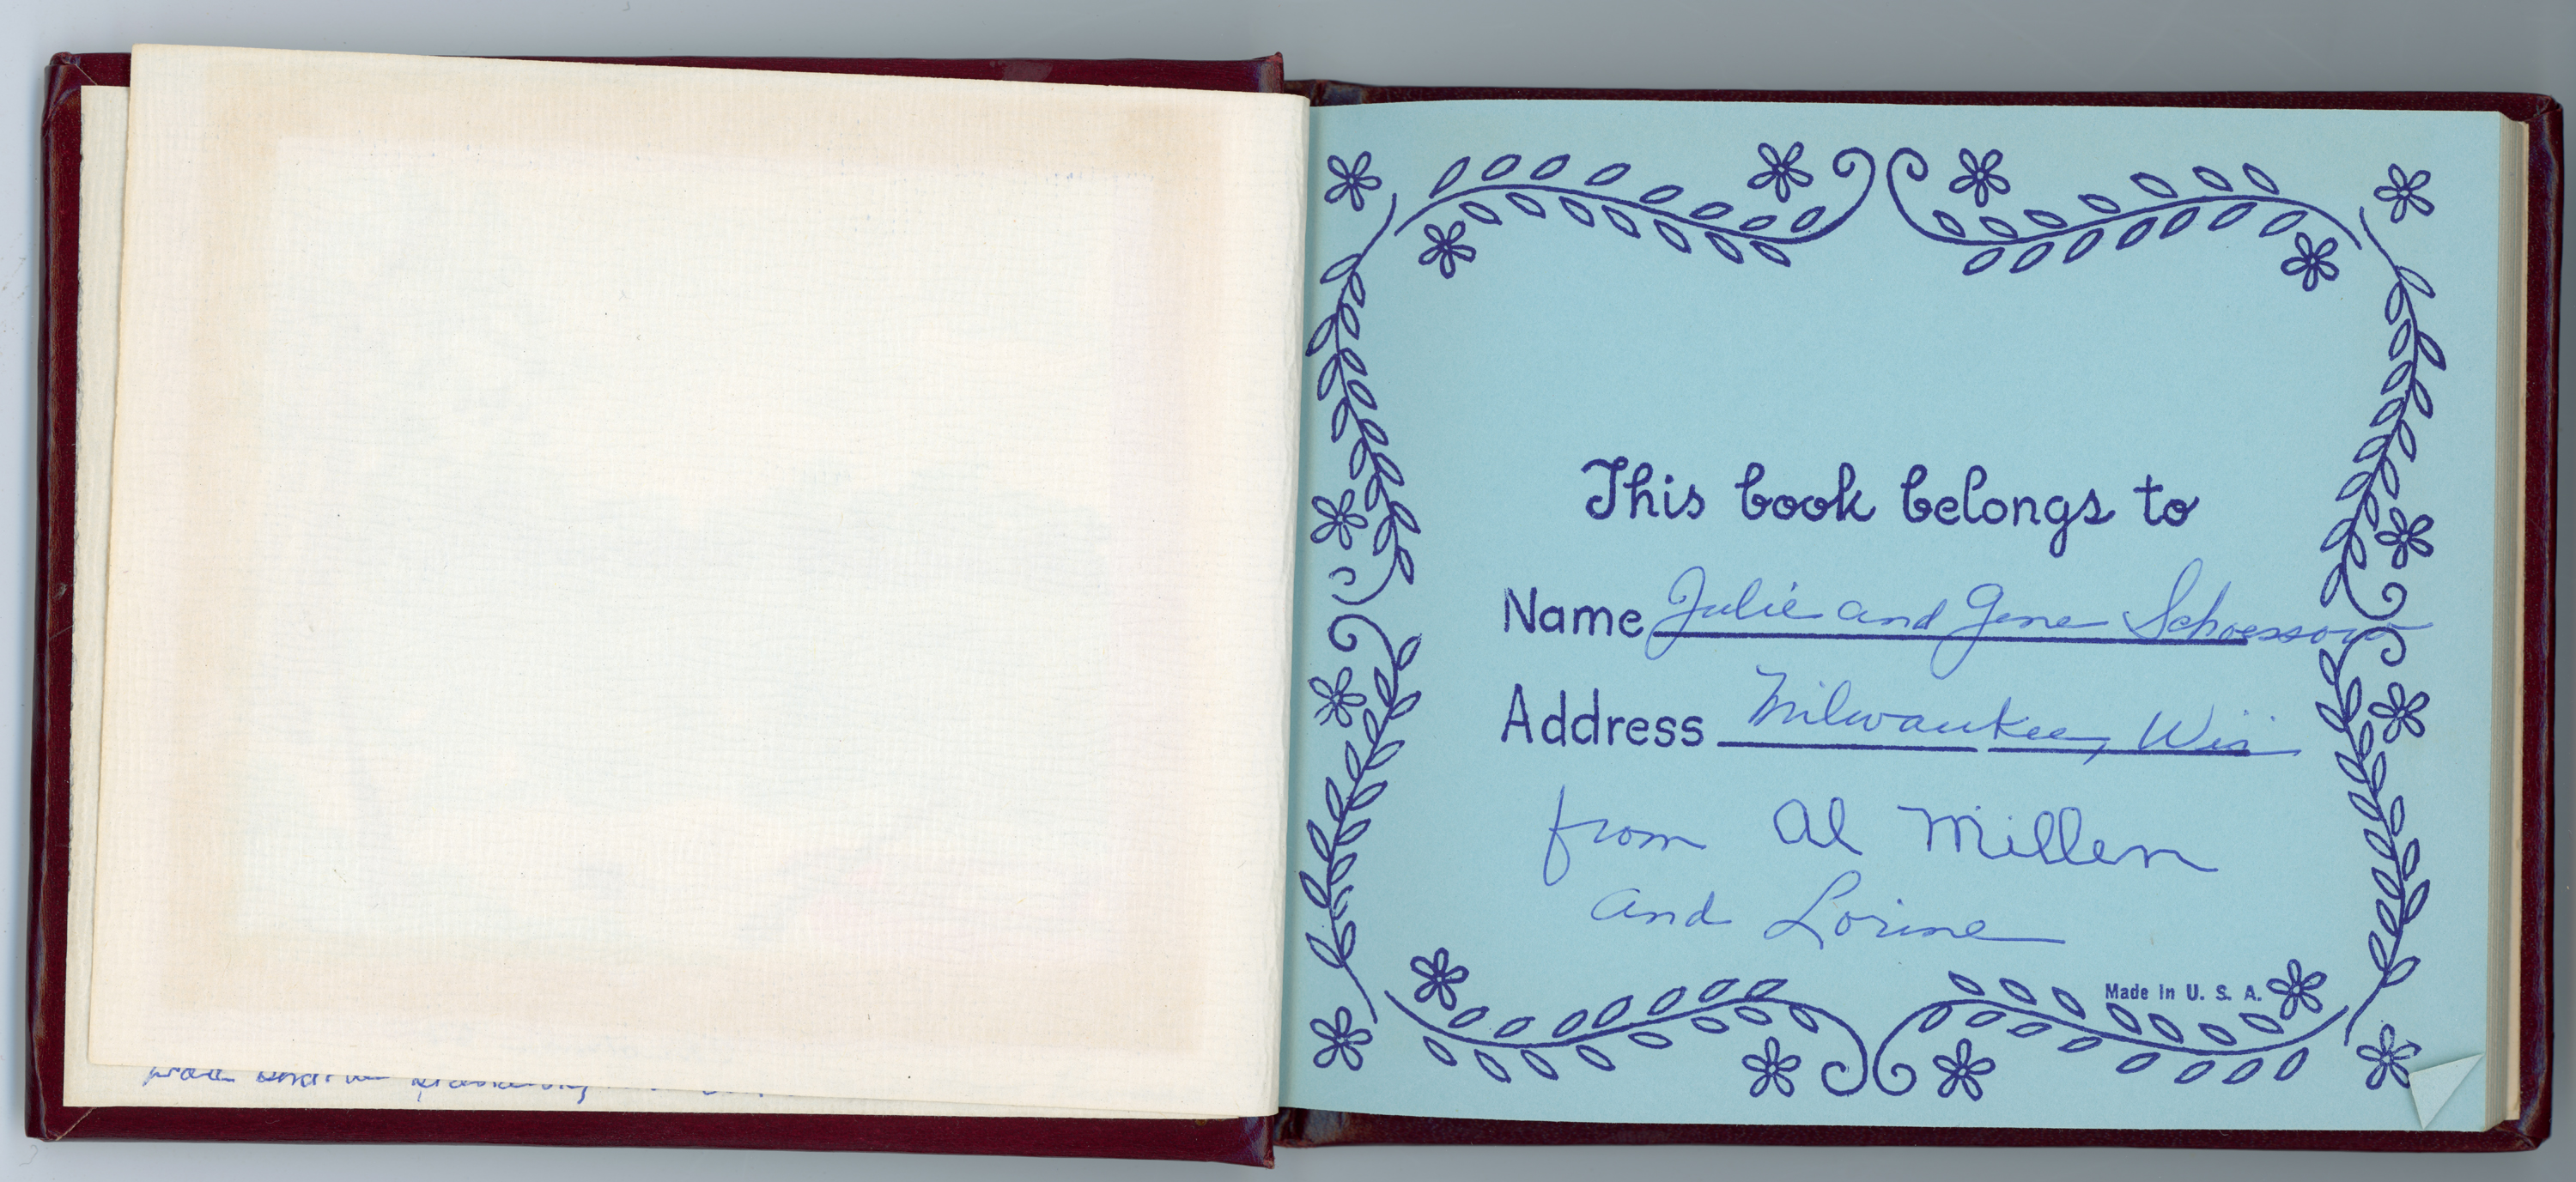 This book belongs to
Name Julie and Gene Schoessow
Address Milwaukee, Wis
from Al Millen
and Lorine
Made In U. S. A.